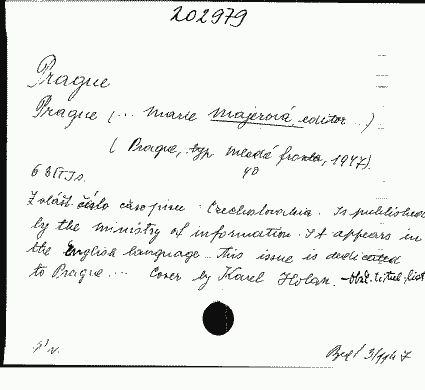 202979
Prague
Prague (... Marie Majerová, editor ...)
( Prague, typ. Mladá fronta, 1947).
40
Zvlášť. číslo časopisu: Czechoslovakia. Is published
by the ministry of information. It appears in
the English language. This issue is dedicated
to Prague... Cover by Karel Holan. - obz. titul. list